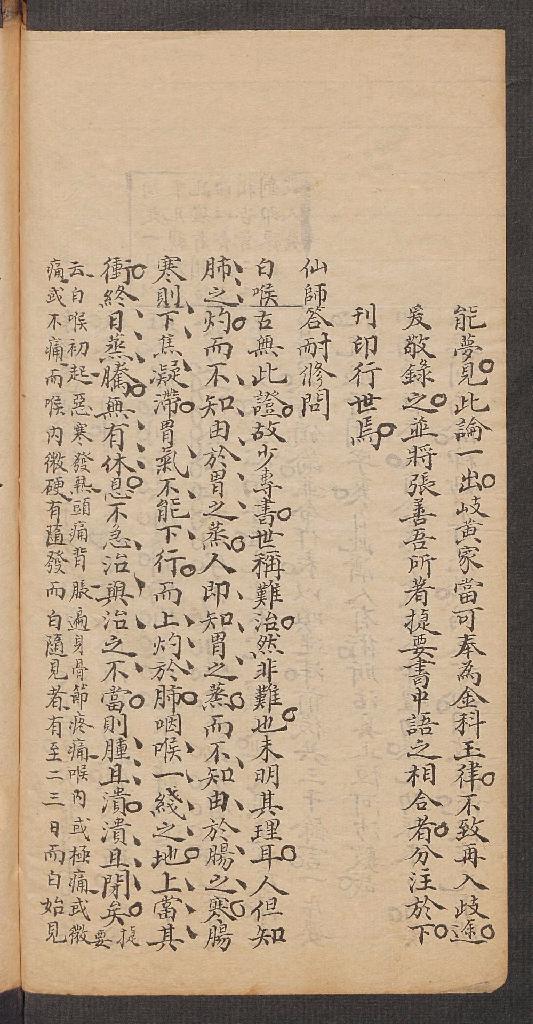 能夢見此論一出岐黃家當可奉為金科玉律不致再入歧途
爰敬錄之並將張善吾所著㨗要書中語之相合者分注於下
刊印行世焉
仙師答耐修問
白喉古無此證故少專書世稱難治然非難也未明其理耳人但知
肺之灼而不知由於胃之蒸人即知胃之蒸而不知由於腸之寒腸
寒則下焦凝滯胃氣不能下行而上灼於肺咽喉一綫之地上當其
衝終日蒸騰無有休息不急治與治之不當則腫且潰潰且閉矣㨗要
云白喉初起惡寒發熱頭痛背脹遍身骨節疼痛喉內或極痛或微
痛或不痛而喉內微硬有隨發而白隨見者有至二三日而白始見